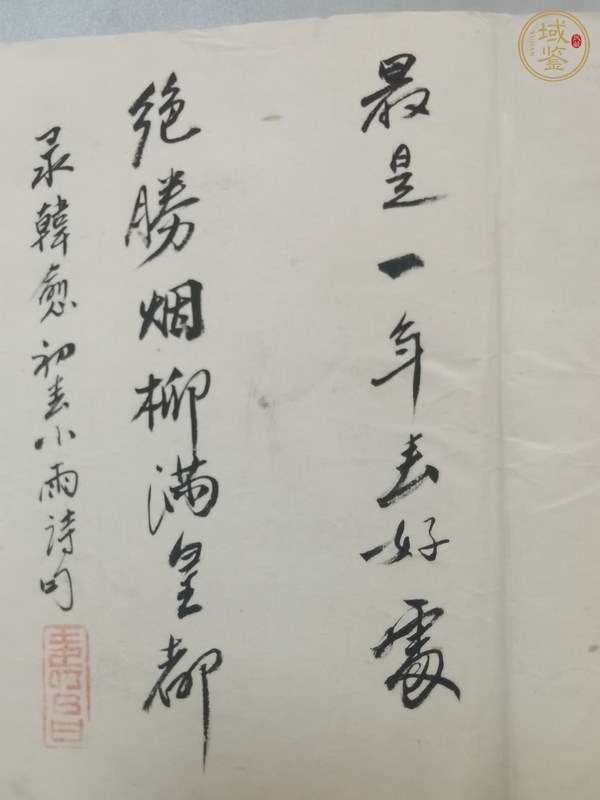 最是一年春好處
绝勝烟柳满皇都
录韓愈初春小雨詩句
域鉴
YUJIAN